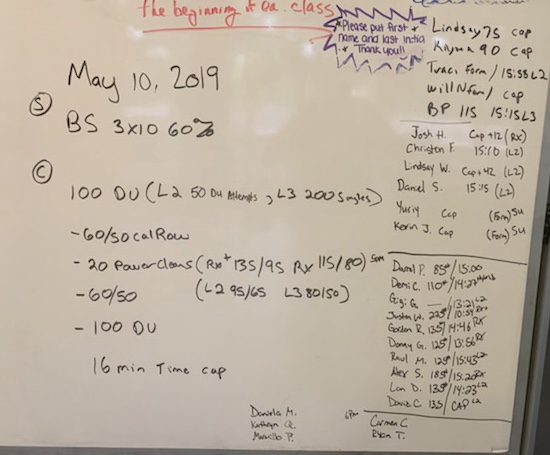 the beginning of ea. class
*Please put first
name and last initia
* Thank you!!
Lindsay 75 cap
Kayma 90 cap
Traci Form / 15:58 L2
Will N Form / cap
BP 115 15:15 L3
May 10, 2019
(S)
BS 3x10 60%
Josh H. Cap +12 (Rx)
Christen F. 15:10 (L2)
Lindsay W. Cap +42 (L2)
Daniel S. 15:15 (L2)
Yuriy Cap (Form) SU
Kevin J. Cap (Form) SU
(C)
100 DU (L2 50 DU Attempts, L3 200 Singles)
- 60/50 cal Row
- 20 Power Cleans (Rx+ 135/95 Rx 115/80)
- 60/50 (L2 95/65 L3 80/50)
- 100 DU
16 min Time cap
5pm
David P. 85# / 15:00
Deric C. 110# / 14:27
Gigi G. — / 13:21 L2
Justin W. 225# / 10:54 Rx
Gordon R. 135 / 14:46 Rx
Danny G. 125# / 13:56 Rx
Raul M. 125# / 15:43 L2
Alex S. 185# / 15:20 Rx
Lan D. 135# / 14:23 L2
David C 135 / CAP L2
Daniela M.
Kathryn Q.
Marcillo P.
6pm
Carmen C
Ryan T.